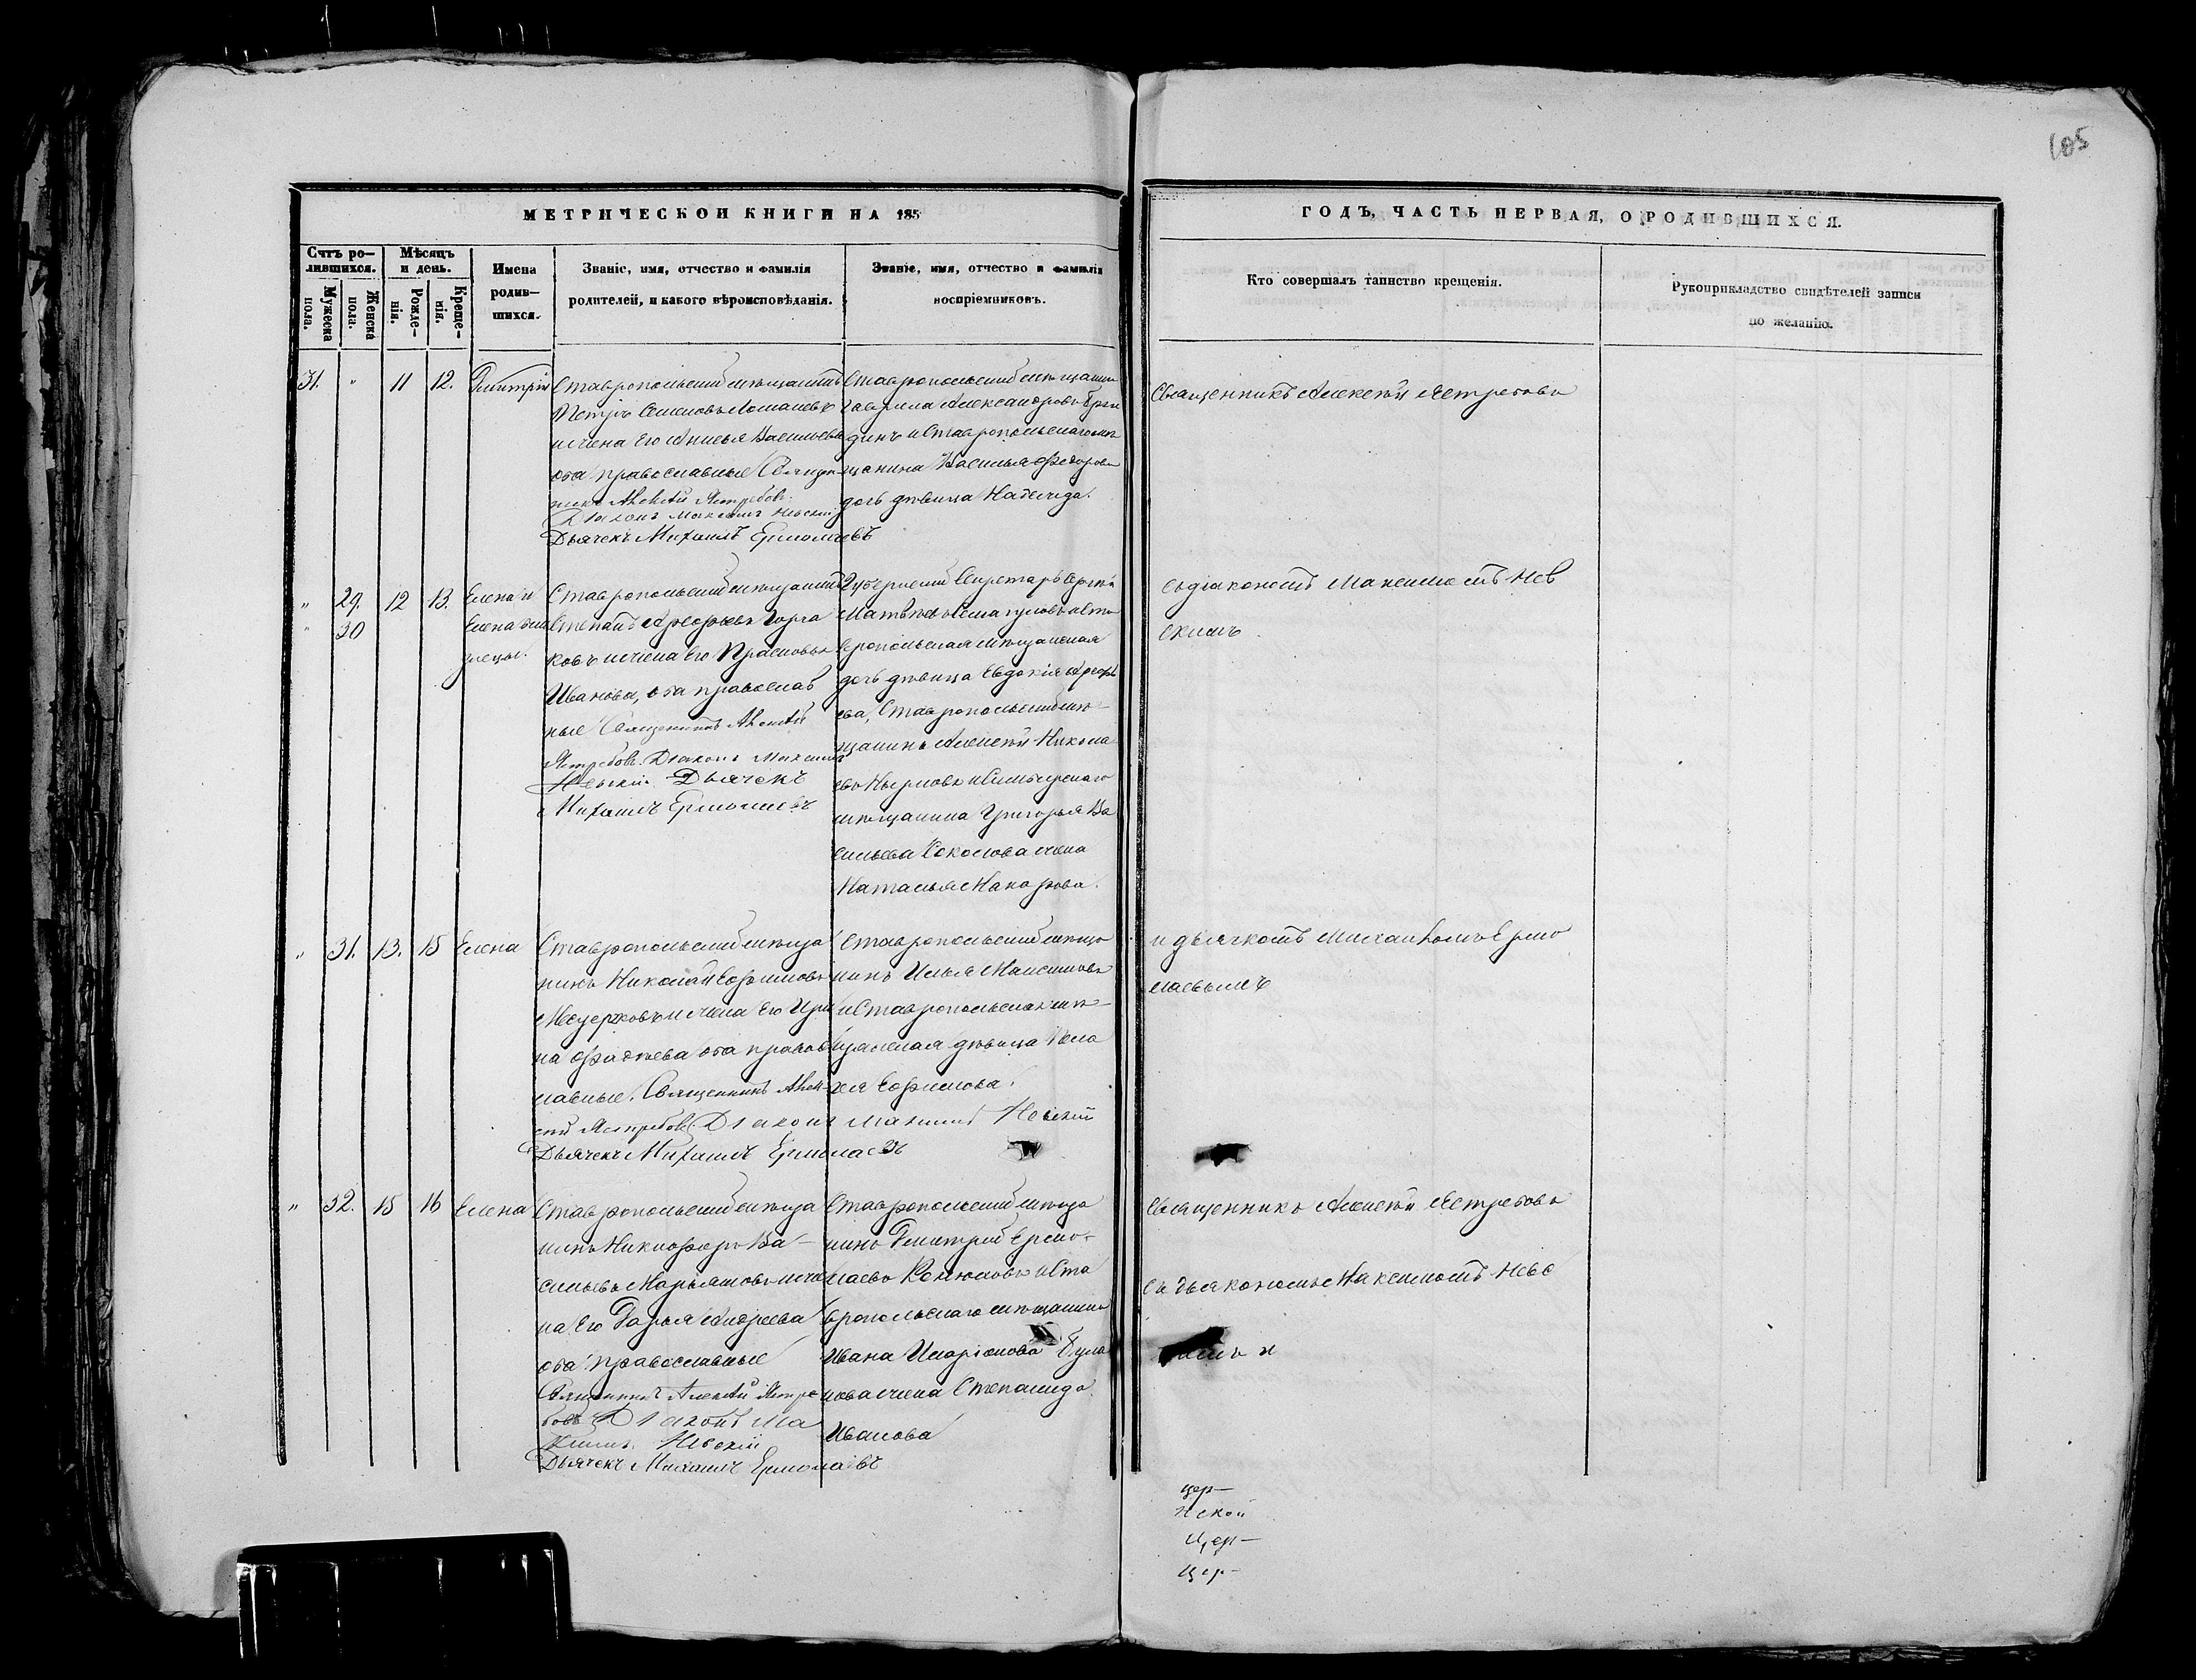 105
МЕТРИЧЕСКОЙ КНИГИ НА 185
ГОДЪ, ЧАСТЬ ПЕРВАЯ, О РОДИВШИХСЯ.
Счтъ ро—
дившихся.
Мужеска
пола.
Женска
пола.
Мѣсяцъ
и день.
Рожде—
нія.
Креще—
нія.
Имена
родив—
шихся.
Званіе, имя, отчество и фамилія
родителей, и какого вѣроисповѣданія.
Званіе, имя, отчество и фамилія
воспріемниковъ.
Кто совершалъ таинство крещенія.
Рукоприкладство свидѣтелей записи
по желанію.
31. " 11 12. Дмитрій
Ставропольскій мѣщанинъ
Петръ Семеновъ
и жена его Васильева
оба православные Священ-
никъ Алексѣй Ястребовъ.
Діаконъ Максимъ Невскій
Дьячекъ Михаилъ Ермолаевъ
Ставропольскій мѣщанин
Гаврила Александровъ
динъ и Ставропольскаго мѣ
щанина Василья Федорова
дочь дѣвица Надежда.
Священникъ Алексѣй Ястребовъ
" 29. 12 13. Елена и
" 30 Елена
Ставропольскій мѣщанинъ
Степанъ Горла
ковъ и жена его Прасковья
Иванова, оба православ
ные Священникъ Алексѣй
Ястребовъ. Діаконъ Максимъ
Невскій. Дьячекъ
Михаилъ Ермолаевъ
Губернскій Секретарь Сергѣй
и Ста
вропольская мѣщанская
дочь дѣвица Евдокія
ева, Ставропольскій мѣ-
щанинъ Алексѣй Никола
евъ и Симбирскаго
мѣщанина Григорья Ва
сильева Соколова жена
Наталья Макарова.
съ діакономъ Максимомъ Нев
скимъ
" 31. 13. 15 Елена
Ставропольскій мѣща
нинъ Николай Ефимовъ
и жена его Ири
на Фадѣева оба право
славные. Священникъ Алек-
сѣй Ястребовъ Діаконъ Максимъ Невскій
Дьячекъ Михаилъ Ермолаевъ
Ставропольскій мѣща
нинъ Илья Максимовъ
и Ставропольская мѣ-
щанская дѣвица Пела
гея Ефимова.
и дьячкомъ Михаиломъ Ермо
лаевымъ
" 32. 15 16 Елена
Ставропольскій мѣща
нинъ Никифоръ Ва-
сильевъ и же
на его Дарья Андреева
оба православные
Священникъ Алексѣй Ястре
бовъ Діаконъ Ма
ксимъ Невскій
Дьячекъ Михаилъ Ермолаевъ
Ставропольскій мѣща
нинъ Дмитрій Ермо-
лаевъ и Ста
вропольскаго мѣщанина
Ивана Иларіонова
жена Степанида
Иванова
Священникъ Алексѣй Ястребовъ
съ дьякономъ Максимомъ Невс
кимъ и
цер—
нской
Цер—
цер—